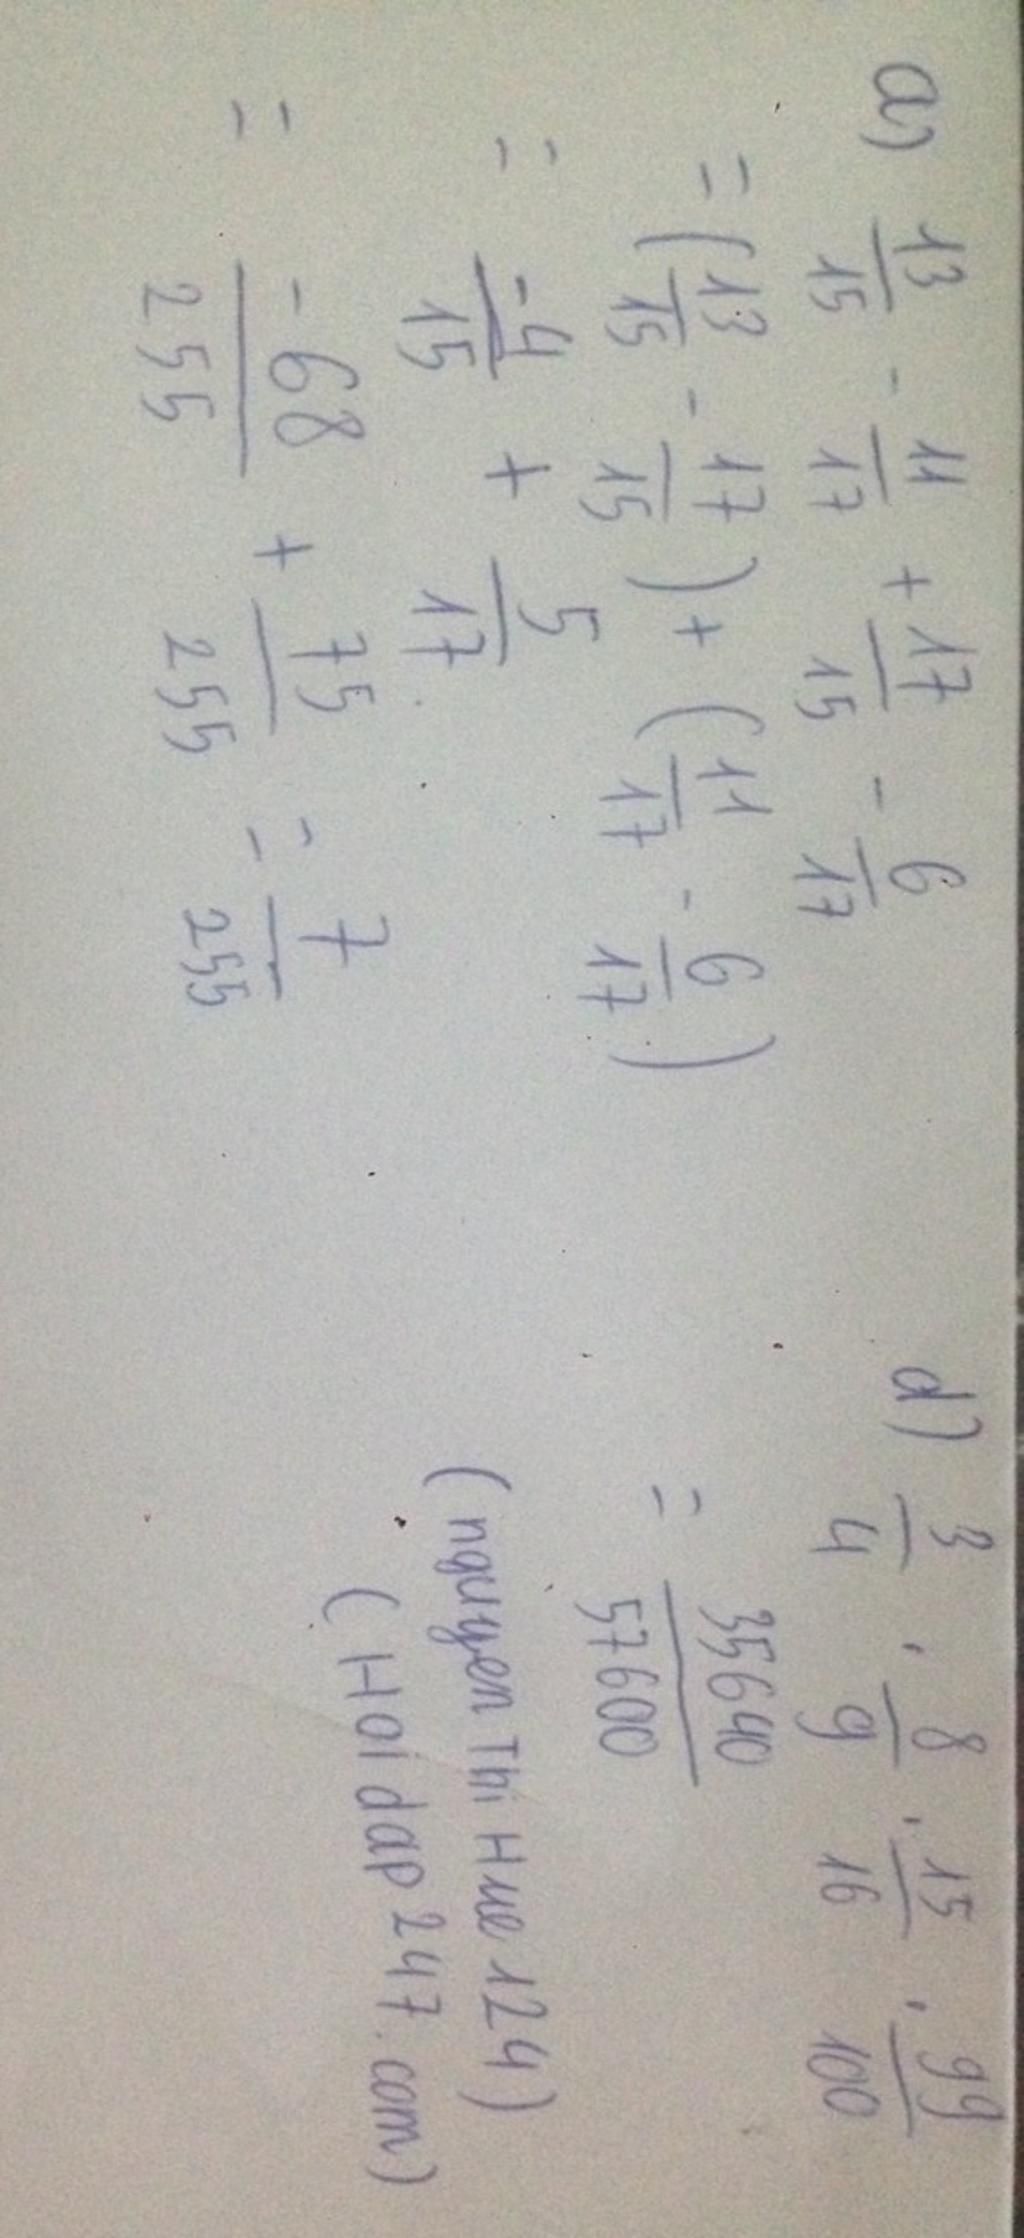 a) 13/15 - 11/17 + 17/15 - 6/17
= (13/15 - 17/15) + (11/17 - 6/17)
= -4/15 + 5/17
= -68/255 + 75/255 = 7/255
d) 3/4 . 8/9 . 15/16 . 99/100
= 35640/57600
(nguyen Thi Hue 124)
(Hoi dap 247.com)